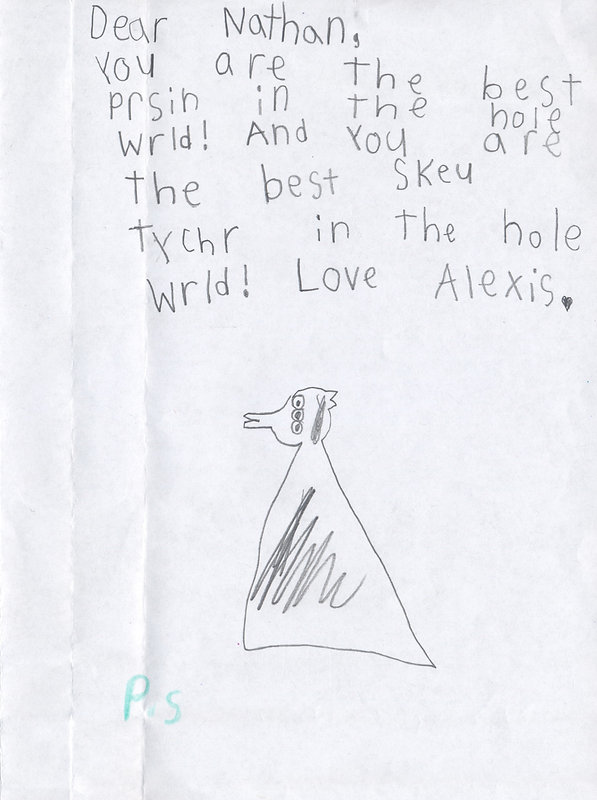 Dear Nathan,
You are the best
prsin in the hole
wrld! And You are
the best Skeu
tychr in the hole
wrld! Love Alexis.
P.s